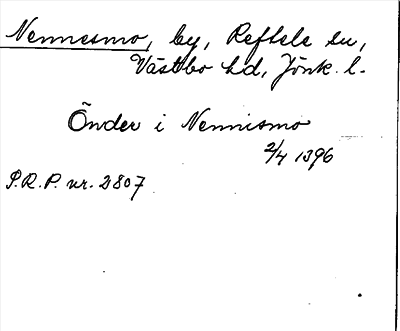 Nennesmo, by, Reftele sn,
Västbo hd, Jönk. l.
Önder i Nennismo
2/4 1396
P.R.P. nr. 2807